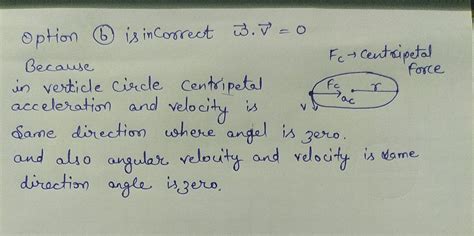 Option ⓑ is inCorrect ω⃗.v⃗ = 0
Because
in verticle Circle Centripetal
acceleration and velocity is
Same direction where angel is zero.
and also angular velocity and velocity is same
direction angle is zero.
Fc → Centripetal
force
Fc
r
ac
v